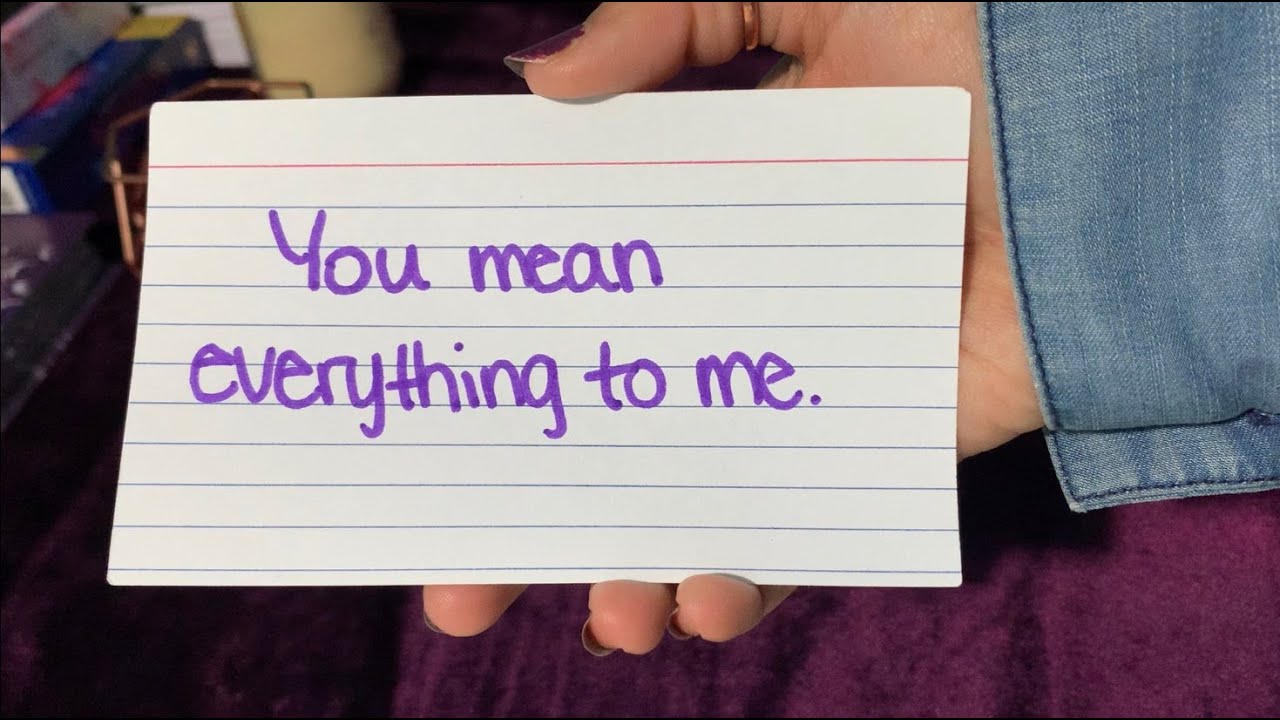 You mean
everything to me.